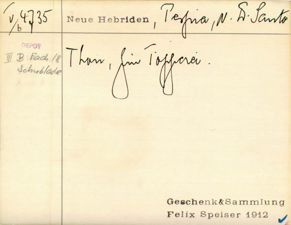 V
b 4735
Neue Hebriden, Pespia, N. W. Santo
DEPOT
III B Fach 18
Schublade
Thon, für Töpferei.
Geschenk&Sammlung
Felix Speiser 1912